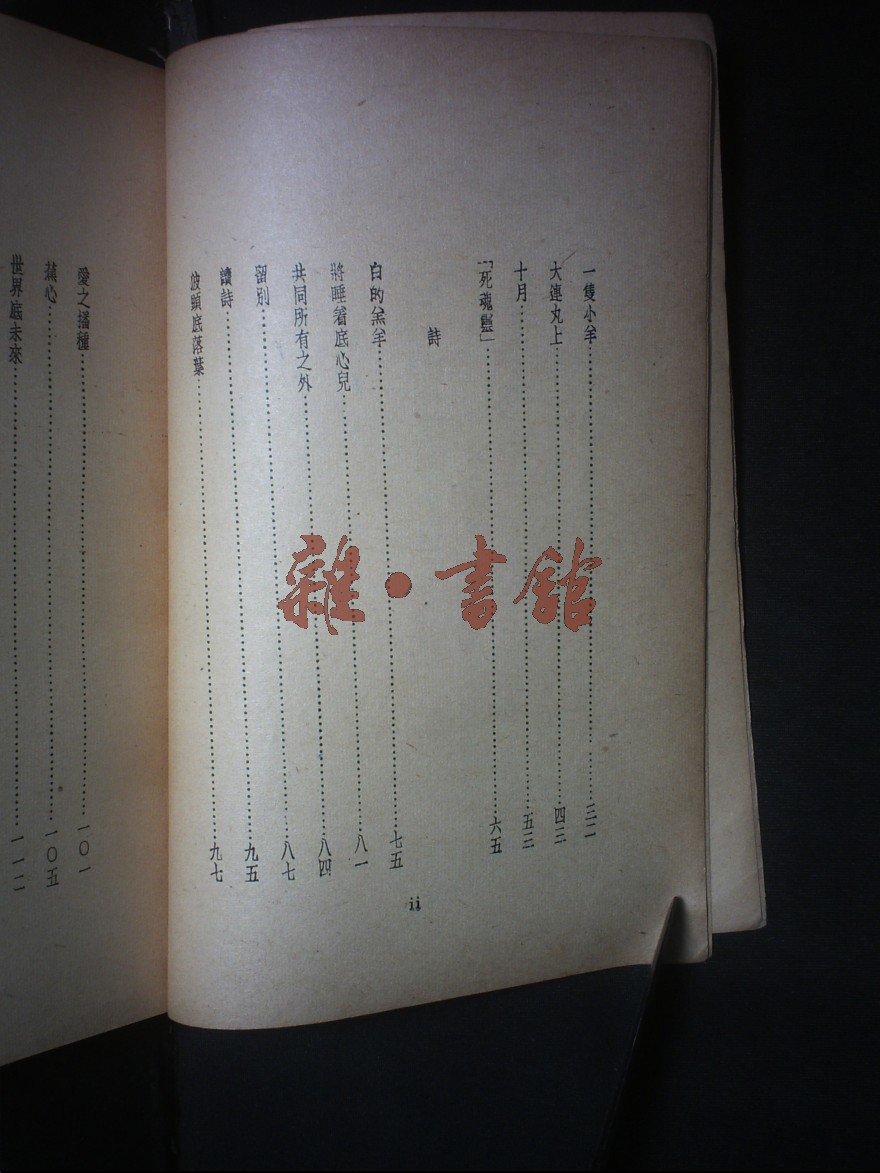 一隻小羊……三二
大連丸上……四三
十月……五三
「死魂靈」……六五
詩
白的羔羊……七五
將睡着底心兒……八一
共同所有之外……八四
留別……八七
讀詩……九五
頭底落葉……九七
ii
愛之播種……一〇一
心……一〇五
世界底未來……一一二
雜·書館